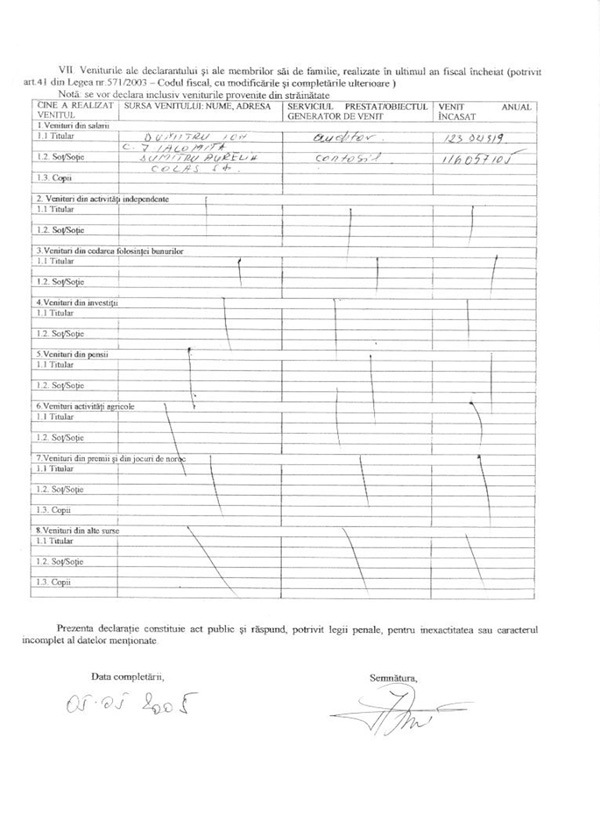 VII. Veniturile ale declarantului şi ale membrilor săi de familie, realizate în ultimul an fiscal încheiat (potrivit
art.41 din Legea nr.571/2003 – Codul fiscal, cu modificările şi completările ulterioare )
Notă: se vor declara inclusiv veniturile provenite din străinătate
CINE A REALIZAT VENITUL
SURSA VENITULUI: NUME, ADRESA
SERVICIUL PRESTAT/OBIECTUL GENERATOR DE VENIT
VENIT ANUAL ÎNCASAT
1.Venituri din salarii
1.1 Titular DUMITRU ION auditor
C. J IALOMITA
1.2. Soţ/Soţie DUMITRU AURELIA
COLAS
1.3. Copii
2. Venituri din activităţi independente
1.1 Titular
1.2. Soţ/Soţie
3.Venituri din cedarea folosinţei bunurilor
1.1 Titular
1.2. Soţ/Soţie
4.Venituri din investiţii
1.1 Titular
1.2. Soţ/Soţie
5.Venituri din pensii
1.1 Titular
1.2. Soţ/Soţie
6.Venituri activităţi agricole
1.1 Titular
1.2. Soţ/Soţie
7.Venituri din premii şi din jocuri de noroc
1.1 Titular
1.2. Soţ/Soţie
1.3. Copii
8.Venituri din alte surse
1.1 Titular
1.2. Soţ/Soţie
1.3. Copii
Prezenta declaraţie constituie act public şi răspund, potrivit legii penale, pentru inexactitatea sau caracterul
incomplet al datelor menţionate.
Data completării, Semnătura,
05.05 2005